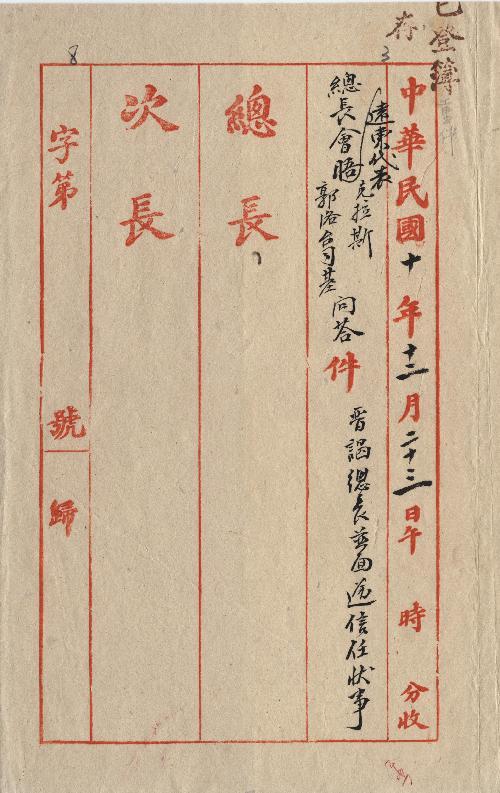 已登簿
存
重件
3
8
中華民國十年十二月二十三日午 時 分收
總長會晤遠東代表克拉斯
郭洛合司基問答件
晉謁總長並面遞信任狀事
總長
次長
字第 號 歸